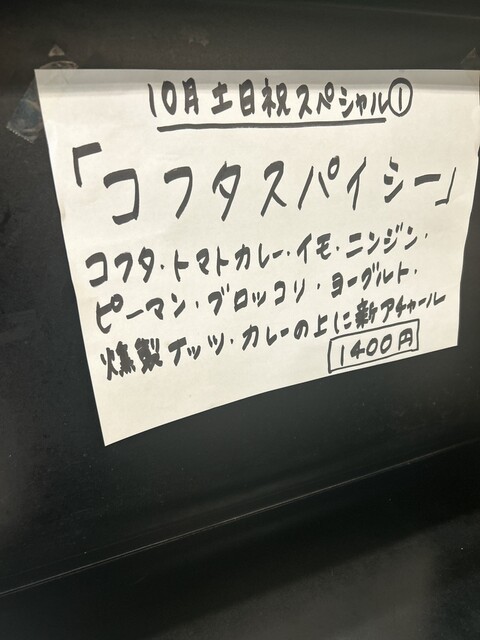 10月土日祝スペシャル①
「コフタスパイシー」
コフタ・トマトカレー・イモ・ニンジン・
ピーマン・ブロッコリ・ヨーグルト・
燻製ナッツ・カレーの上に新アチャール
1400円